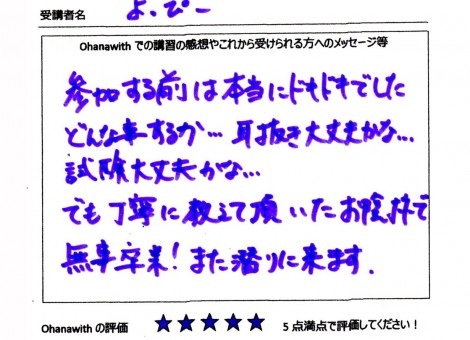 受講者名 よっぴー
Ohanawith での講習の感想やこれから受けられる方へのメッセージ等
参加する前は本当にドキドキでした
どんな事するか… 耳抜き大丈夫かな…
試験大丈夫かな…
でも丁寧に教えて頂いたお陰様で
無事卒業！また潜りに来ます.
Ohanawith の評価 ★★★★★ 5 点満点で評価してください！